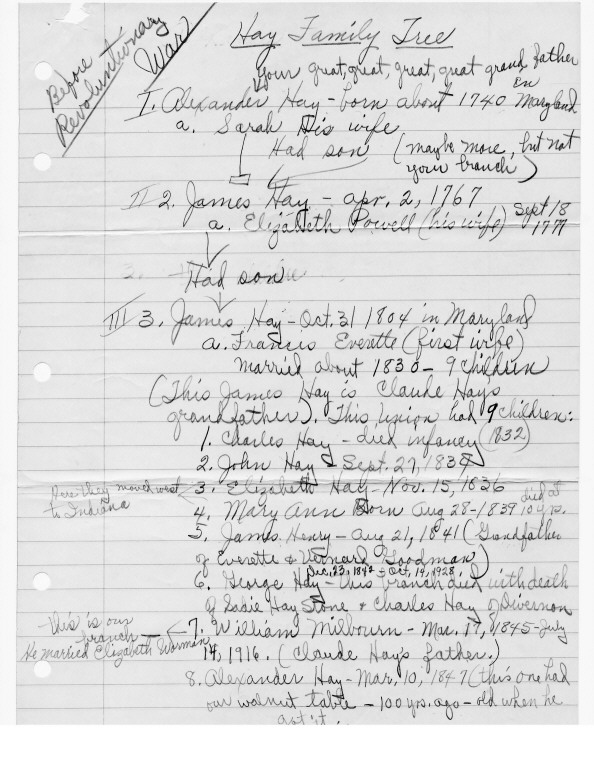 Before
Revoluntionary
War
Hay Family Tree
Your great, great, great, great grand father
I. Alexander Hay - born about 1740 in Maryland
a. Sarah His wife
Had son (maybe more, but not
your branch)
II 2. James Hay - apr. 2, 1767
a. Elizabeth Powell (his wife) Sept 18
1779
Had son
III 3. James Hay - Oct. 31 1804 in Maryland
a. Francis Everette (first wife)
married about 1830 - 9 children
(This James Hay is Claude Hay's
grandfather). This union had 9 children:
1. Charles Hay - died infancy (1832)
2. John Hay - Sept. 27, 1834
Here they moved west
to Indiana
3. Elizabeth Hay - Nov. 15, 1836
4. Mary Ann Born Aug 28 - 1839 died at
10 yrs.
5. James Henry - Aug 21, 1841 (Grandfather
of Everette & Vernard Goodman)
Dec. 23, 1842 - Oct. 14, 1928
6. George Hay - this branch died with death
of Sadie Hay Stone & Charles Hay of Divernon
this is our
branch
He married Elizabeth Warman
7. William Milbourn - Mar. 17, 1845 - July
14, 1916. (Claude Hay's father.)
8. Alexander Hay - Mar. 10, 1847 (this one had
our walnut table - 100 yrs. ago - old when he
got it.